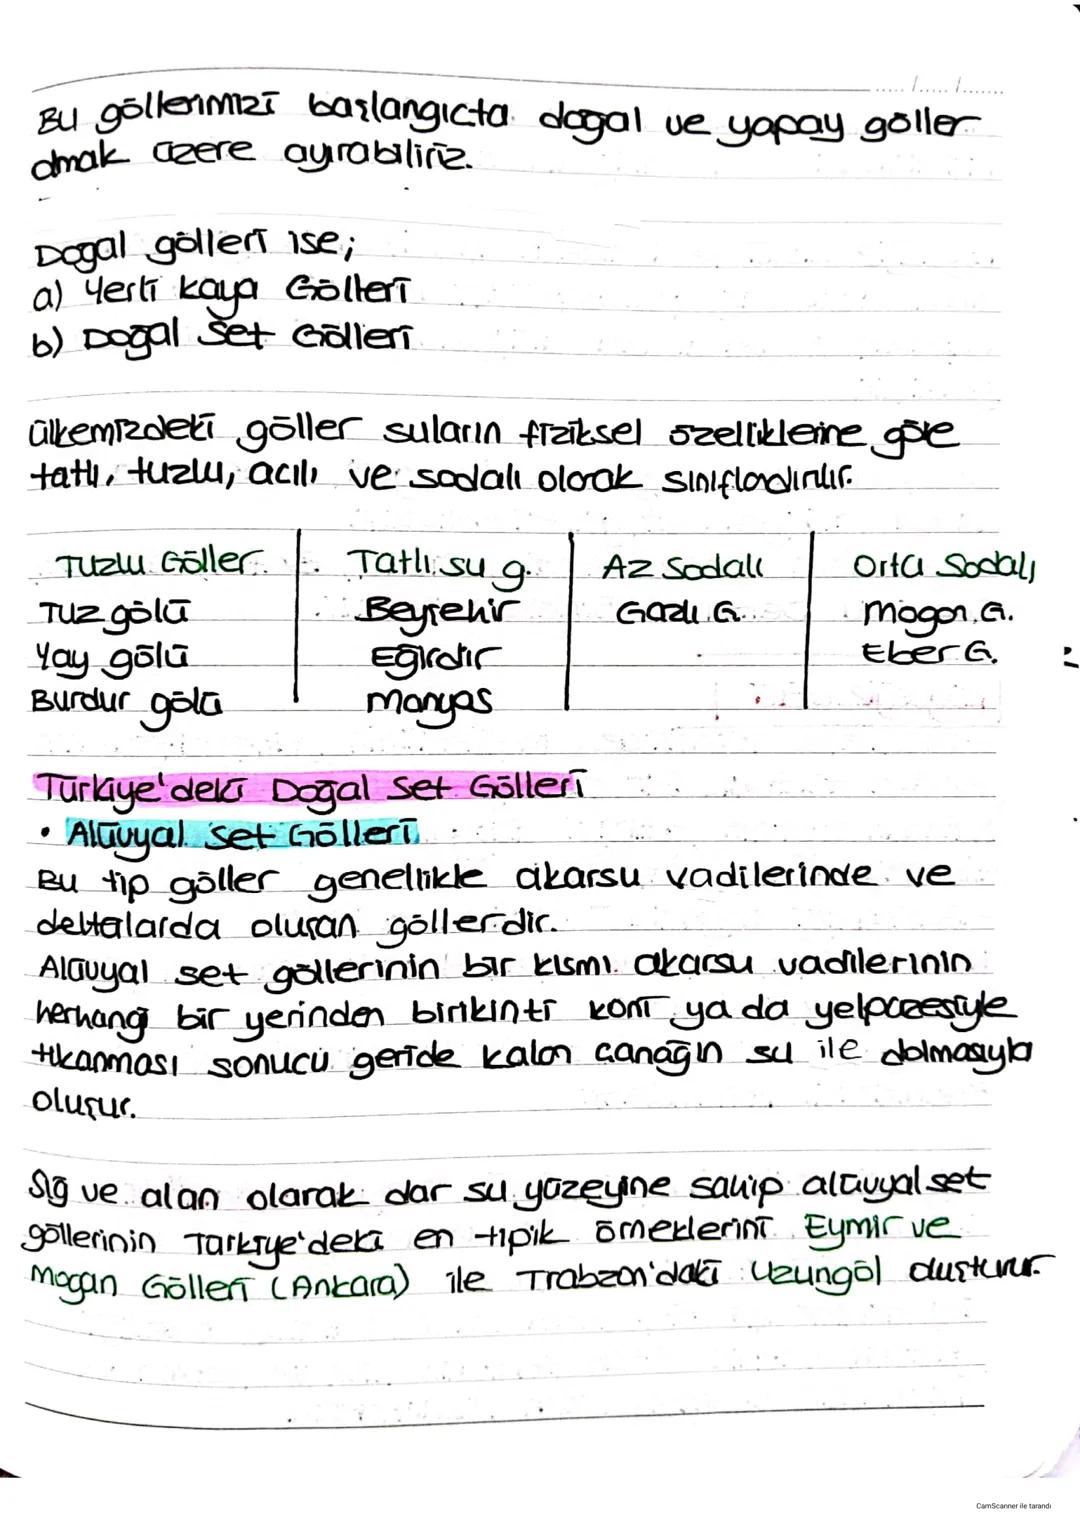 Bu göllerimizi başlangıçta doğal ve yapay göller
olmak üzere ayırabiliriz.
Doğal gölleri ise;
a) Yerli kaya Gölleri
b) Doğal Set Gölleri
ülkemizdeki göller suların fiziksel özelliklerine göre
tatlı, tuzlu, acılı ve sodalı olarak sınıflandırılır.
Tuzlu Göller Tatlı su g. Az Sodalı Orta Sodalı
Tuz gölü Beyşehir Gazlı G. Mogan G.
Yay gölü Eğirdir Eber G.
Burdur gölü Manyas
Türkiye'deki Doğal Set Gölleri
• Alüvyal Set Gölleri
Bu tip göller genellikle akarsu vadilerinde ve
deltalarda oluşan göllerdir.
Alüvyal set göllerinin bir kısmı akarsu vadilerinin
herhangi bir yerinden birikinti koni ya da yelpazesiyle
tıkanması sonucu geride kalan çanağın su ile dolmasıyla
oluşur.
Sığ ve alan olarak dar su yüzeyine sahip alüvyal set
göllerinin Türkiye'deki en tipik örneklerini Eymir ve
Mogan Gölleri (Ankara) ile Trabzon'daki Uzungöl oluşturur.
CamScanner ile tarandı